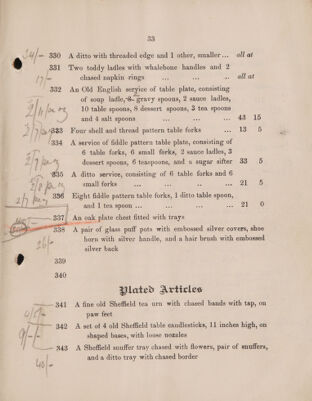 33
24/- 330 A ditto with threaded edge and 1 other, smaller ... all at
331 Two toddy ladles with whalebone handles and 2
17/- chased napkin rings ... ... .. all at
332 An Old English service of table plate, consisting
of soup ladle, 8 gravy spoons, 2 sauce ladles,
10 table spoons, 8 dessert spoons, 8 tea spoons
and 4 salt spoons ... ... ... 43 15
333 Four shell and thread pattern table forks ... 13 5
334 A service of fiddle pattern table plate, consisting of
6 table forks, 6 small forks, 2 sauce ladles, 3
dessert spoons, 6 teaspoons, and a sugar sifter 33 5
335 A ditto service, consisting of table forks and 6
small forks ... ... ... ... 21 5
336 Eight fiddle pattern table forks, 1 ditto table spoon,
and 1 tea spoon ... ... ... ... 21 0
337 An oak plate chest fitted with trays
338 A pair of glass puff pots with embossed silver covers, shoe
26/- horn with silver handle, and a hair brush with embossed
silver back
339
340
Plated Articles
341 A fine old Sheffield tea urn with chased bands with tap, on
paw feet
342 A set of 4 old Sheffield table candlesticks, 11 inches high, on
9/-/- shaped bases, with loose nozzles
343 A Sheffield snuffer tray chased with flowers, pair of snuffers,
and a ditto tray with chased border